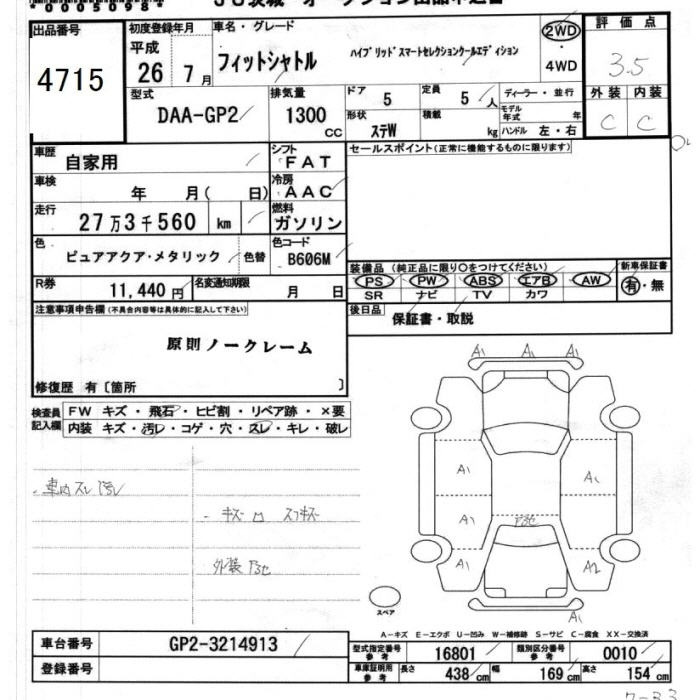 *0005098*
JU茨城 オークション出品申込書
出品番号 4715
初度登録年月 平成 26 7月
車名・グレード フィットシャトル ハイブリッドスマートセレクションクールエディション
2WD ・ 4WD
評価点 3.5
外装 内装
C C
型式 DAA-GP2
排気量 1300 CC
ドア 5 定員 5人
形状 ステW 積載 kg
ディーラー・並行
モデル年式 年
ハンドル 左・右
車歴 自家用
シフト FAT
セールスポイント(正常に機能するものに限ります)
車検 年 月( 日)
冷房 AAC
走行 27万3千560 km
燃料 ガソリン
色 ピュアアクア・メタリック 色替
色コード B606M
装備品(純正品に限り○をつけてください) 新車保証書
PS PW ABS エアB AW 有・無
SR ナビ TV カワ
R券 11,440円 名変通知期限 月 日
後日品 保証書・取説
注意事項申告欄(不具合内容等は具体的に記入して下さい)
原則ノークレーム
修復歴 有〔箇所 〕
検査員記入欄
FW キズ・飛石・ヒビ割・リペア跡・×要
内装 キズ・汚レ・コゲ・穴・スレ・キレ・破レ
・車内スレ汚レ
・キズ ロ スリキズ
A1 A1
A1 A1
A1
A1 A2
A1 A1
スペア
A-キズ E-エクボ U-凹み W-補修跡 S-サビ C-腐食 XX-交換済
車台番号 GP2-3214913
登録番号
型式指定番号 参考 16801 類別区分番号 参考 0010
車庫証明用 参考 長さ 438cm 幅 169cm 高さ 154cm